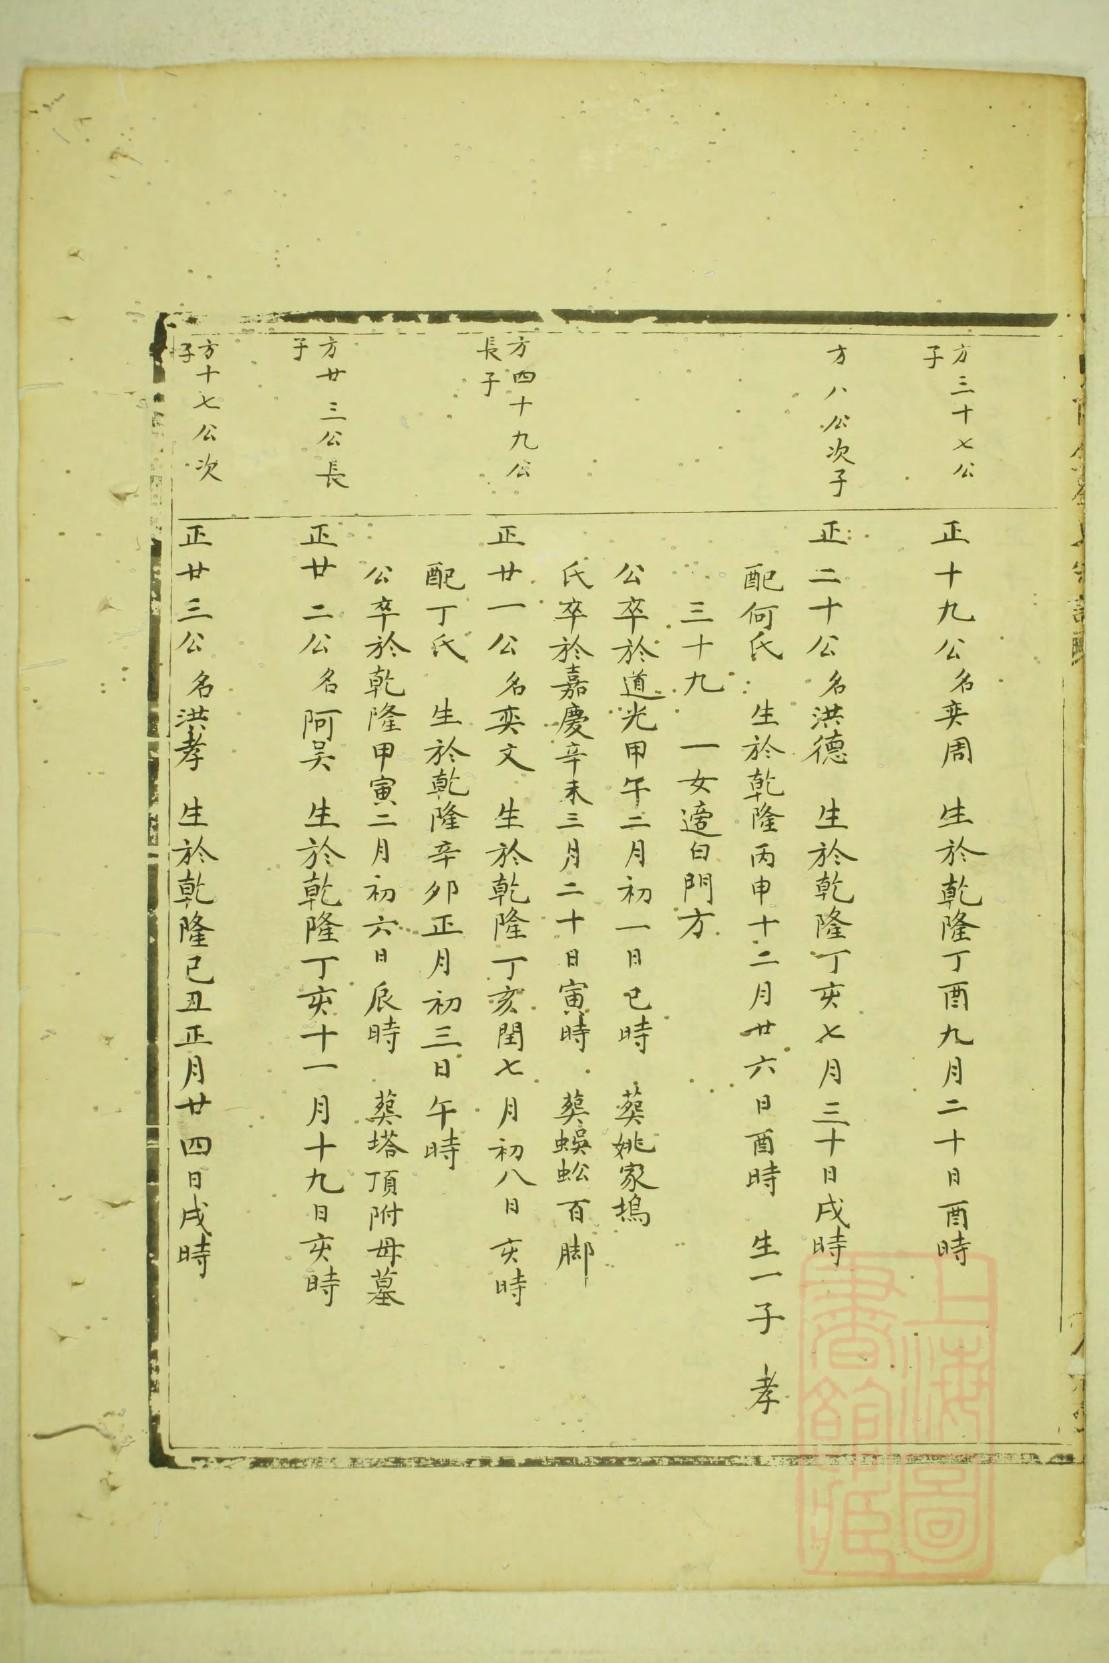 方三十七公
子
正十九公名奕周　生於乾隆丁酉九月二十日酉時
方八公次子
正二十公名洪德　生於乾隆丁亥七月三十日戌時
配何氏　生於乾隆丙申十二月廿六日酉時　生一子　孝
三十九　一女適白門方
公卒於道光甲午二月初一日巳時　葬姚家塢
氏卒於嘉慶辛未三月二十日寅時　葬蜈蚣百脚
方四十九公
長子
正廿一公名奕文　生於乾隆丁亥閏七月初八日亥時
配丁氏　生於乾隆辛卯正月初三日午時
公卒於乾隆甲寅二月初六日辰時　葬塔頂附母墓
方廿三公長
子
正廿二公名阿吳　生於乾隆丁亥十一月十九日亥時
方十七公次
子
正廿三公名洪孝　生於乾隆己丑正月廿四日戌時
上海圖
書館藏